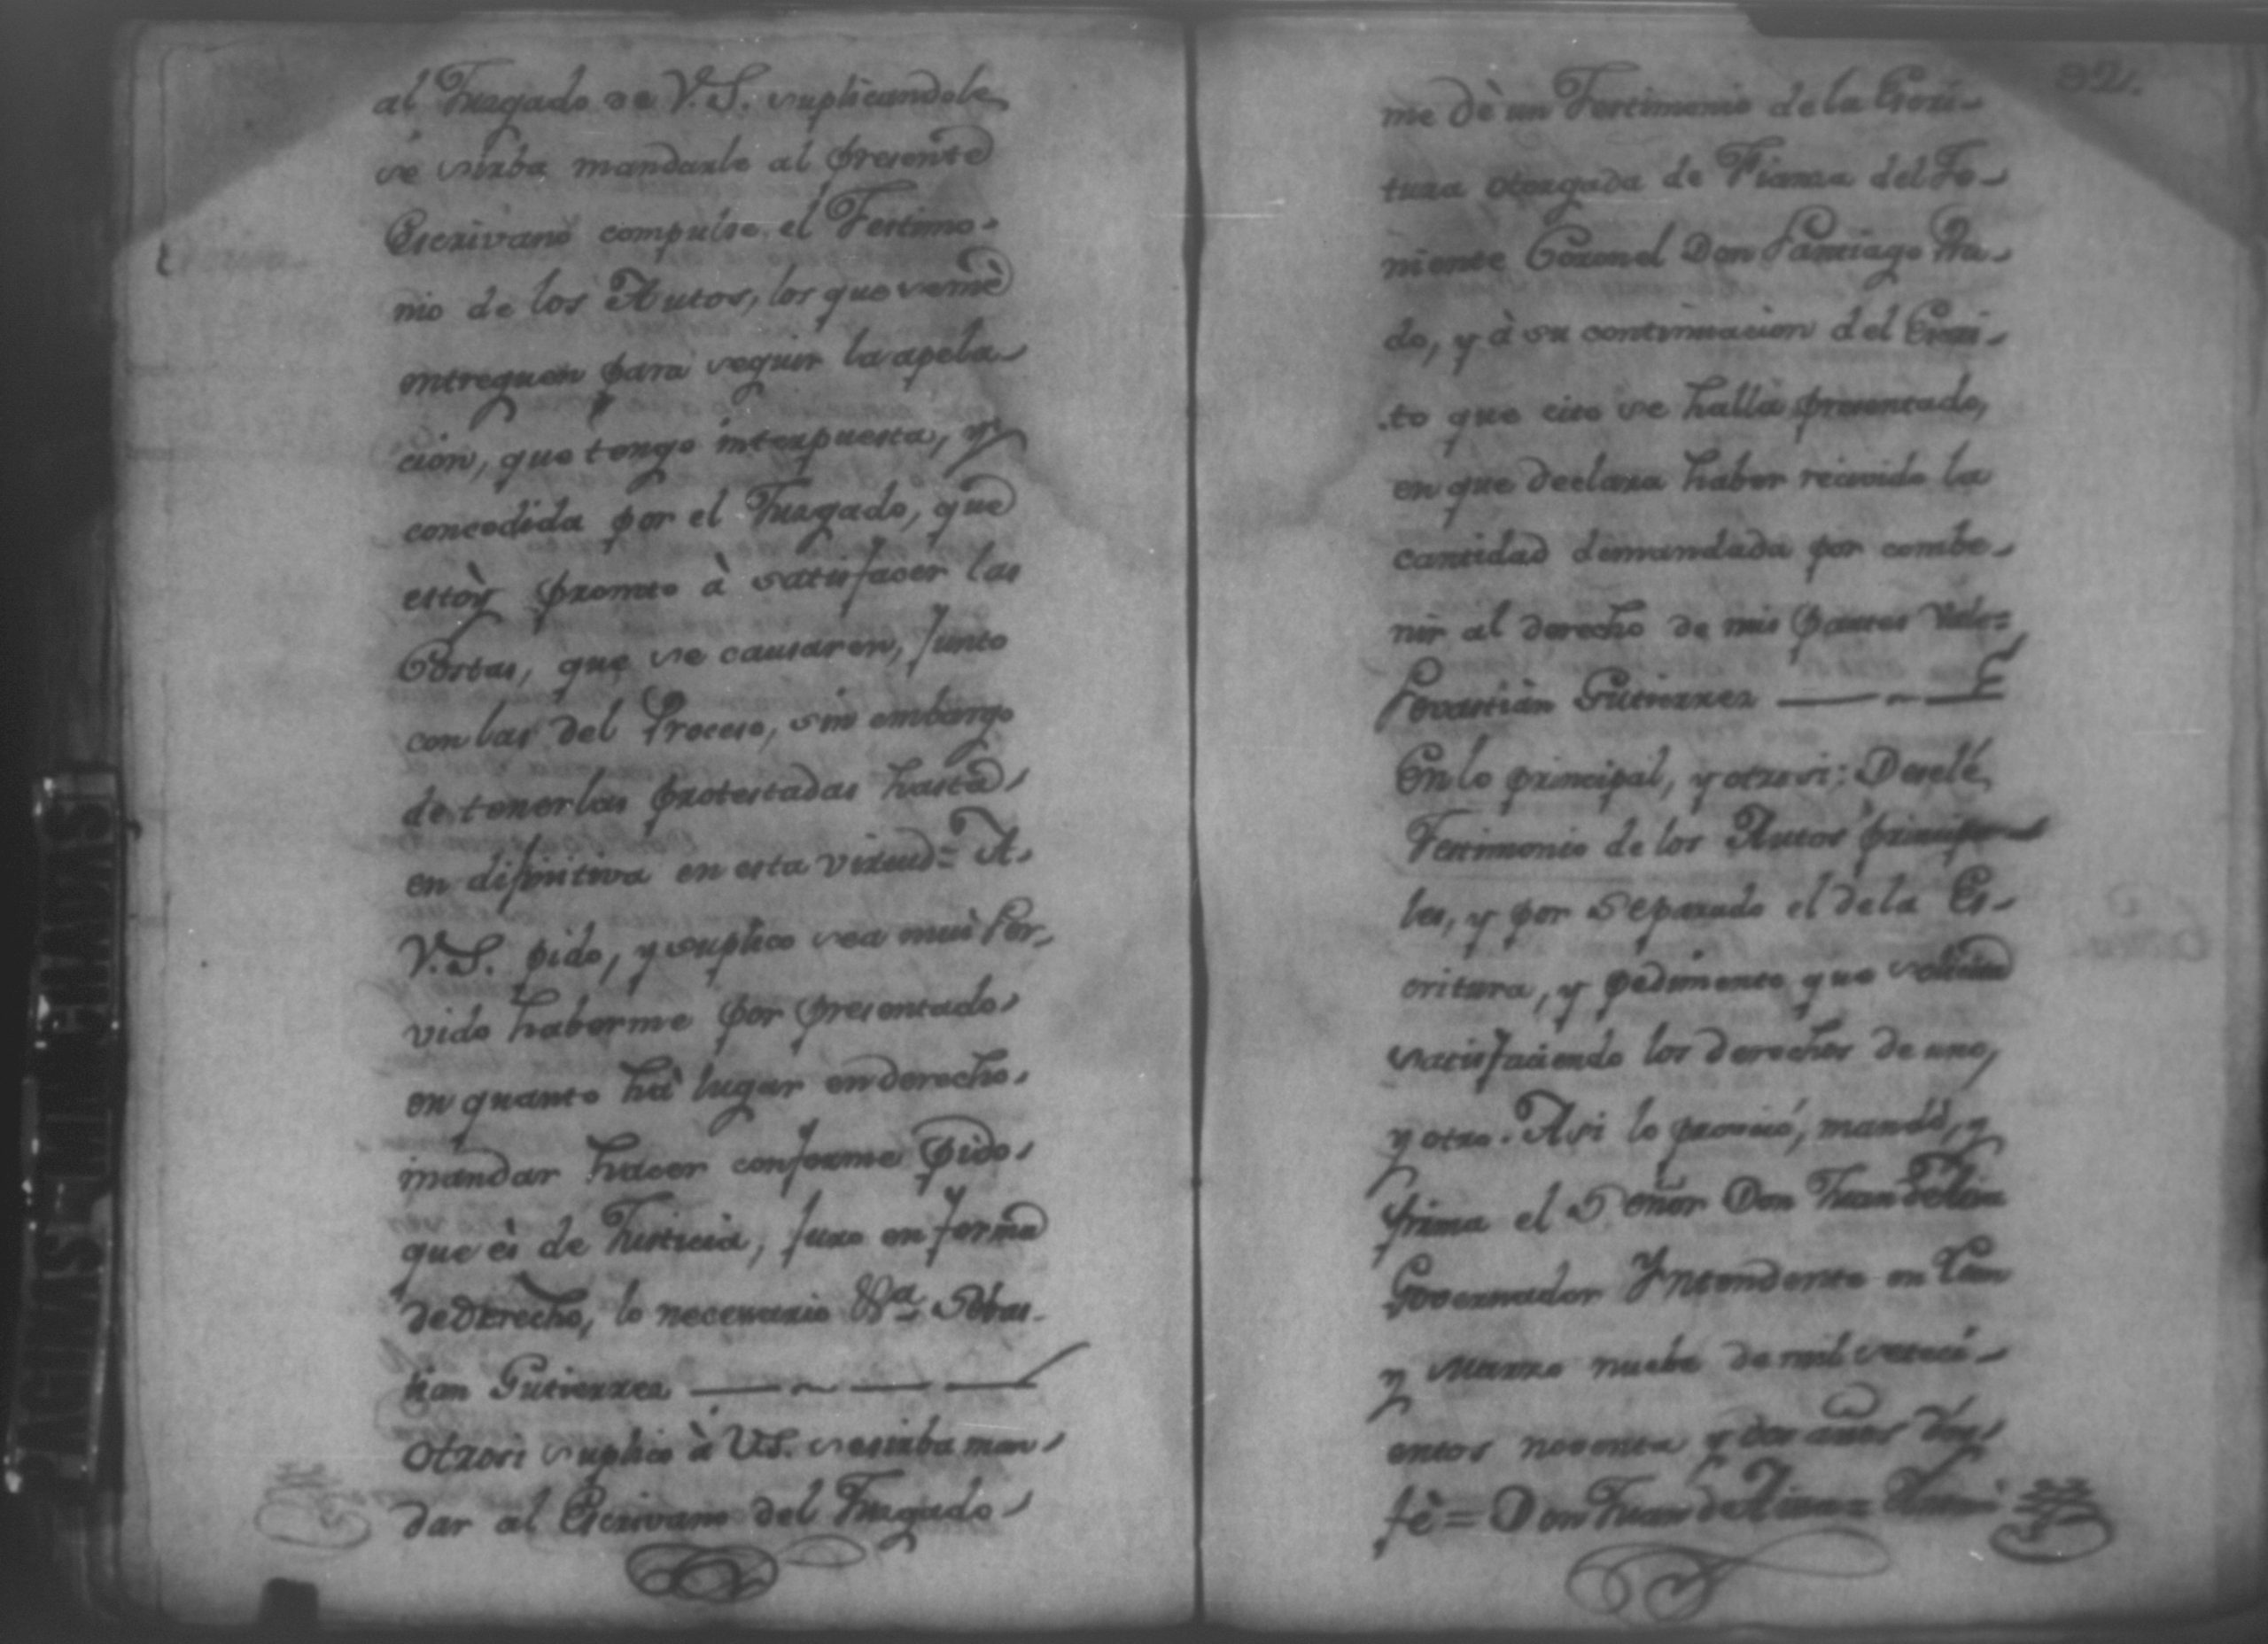 al Juzgado de V.S. suplicandole
se sirba mandarle al presente
Escrivano compulse el Testimo-
nio de los Autos, los que se me
entreguen para seguir la apela-
cion, que tengo interpuesta, y
concedida por el Juzgado, que
estòy promto à satisfacer las
Costas, que se causaren, Junto
con las del Proceso, sin embargo
de tenerlas protestadas hasta
en difinitiva en esta virtud= A
V.S. pido, y suplico sea mui Ser-
vido haberme por presentado
en quanto hà lugar en derecho
mandar hacer conforme pido
que ès de Justicia, Juro en forma
de derecho, lo necesario &a Sebas-
tian Gutierrez
Otrosi suplico à V.S. se sirba man-
dar al Escrivano del Juzgado
82.
me dè un Testimonio de la Escri-
tura otorgada de Fianza del Te-
niente Coronel Don Santiago Pra-
do, y à su continuacion del Escri-
to que cito se halla presentado,
en que declara haber recivido la
cantidad demandada por combe-
nir al derecho de mis partes
Sevastiàn Gutierrez
En lo principal, y otrosi: Desele
Testimonio de los Autos principa-
les, y por separado el de la Es-
critura, y pedimento que solicita
satisfaciendo los derechos de uno,
y otro. Asi lo proveió, mandó, y
firma el Señor Don Juan
Governador Yntendente en
y Marzo nuebe de mil seteci-
entos noventa y dos años doy
fè= Don Juan de